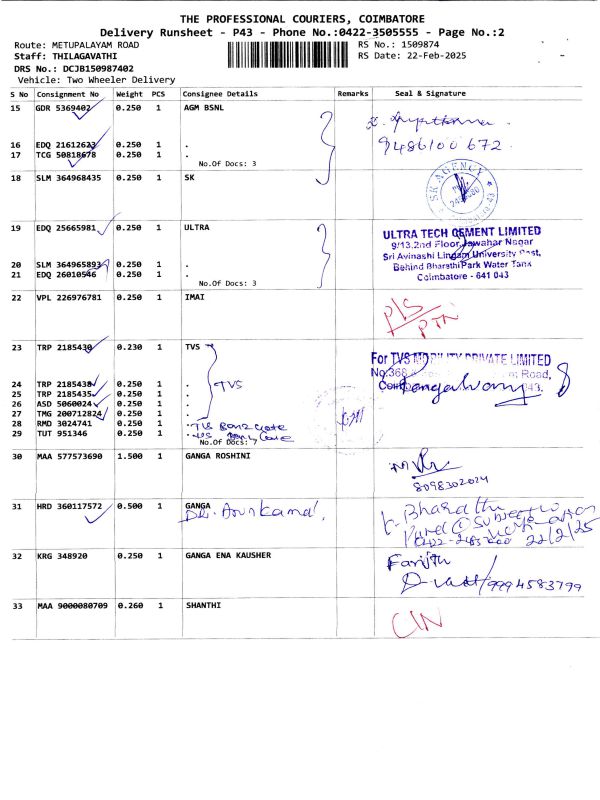 THE PROFESSIONAL COURIERS, COIMBATORE
Delivery Runsheet - P43 - Phone No.:0422-3505555 - Page No.:2
Route: METUPALAYAM ROAD RS No.: 1509874
Staff: THILAGAVATHI RS Date: 22-Feb-2025
DRS No.: DCJB150987402
Vehicle: Two Wheeler Delivery
S No Consignment No Weight PCS Consignee Details Remarks Seal & Signature
15 GDR 5369402 0.250 1 AGM BSNL
16 EDQ 21612623 0.250 1 . 9486100672
17 TCG 50818678 0.250 1 .
No.Of Docs: 3
18 SLM 364968435 0.250 1 SK
SK AGENCY
19 EDQ 25665981 0.250 1 ULTRA
ULTRA TECH CEMENT LIMITED
9/13,2nd Floor,Jawahar Nagar
Sri Avinashi Lingam University Post,
Behind Bharathi Park Water Tank
Coimbatore - 641 043
20 SLM 364965893 0.250 1 .
21 EDQ 26010546 0.250 1 .
No.Of Docs: 3
22 VPL 226976781 0.250 1 IMAI
P/S
PTN
23 TRP 2185430 0.230 1 TVS
For TVS MOBILITY PRIVATE LIMITED
No:368 Road,
24 TRP 2185438 0.250 1 . TVS
25 TRP 2185435 0.250 1 .
26 ASD 5060024 0.250 1 .
27 TMG 200712824 0.250 1 .
28 RMD 3024741 0.250 1 .
29 TUT 951346 0.250 1 .
No.Of Docs: 7
30 MAA 577573690 1.500 1 GANGA ROSHINI
8098302024
31 HRD 360117572 0.500 1 GANGA
K. Bharathi
22/2/25
32 KRG 348920 0.250 1 GANGA ENA KAUSHER
9994583799
33 MAA 9000080709 0.260 1 SHANTHI
C/N